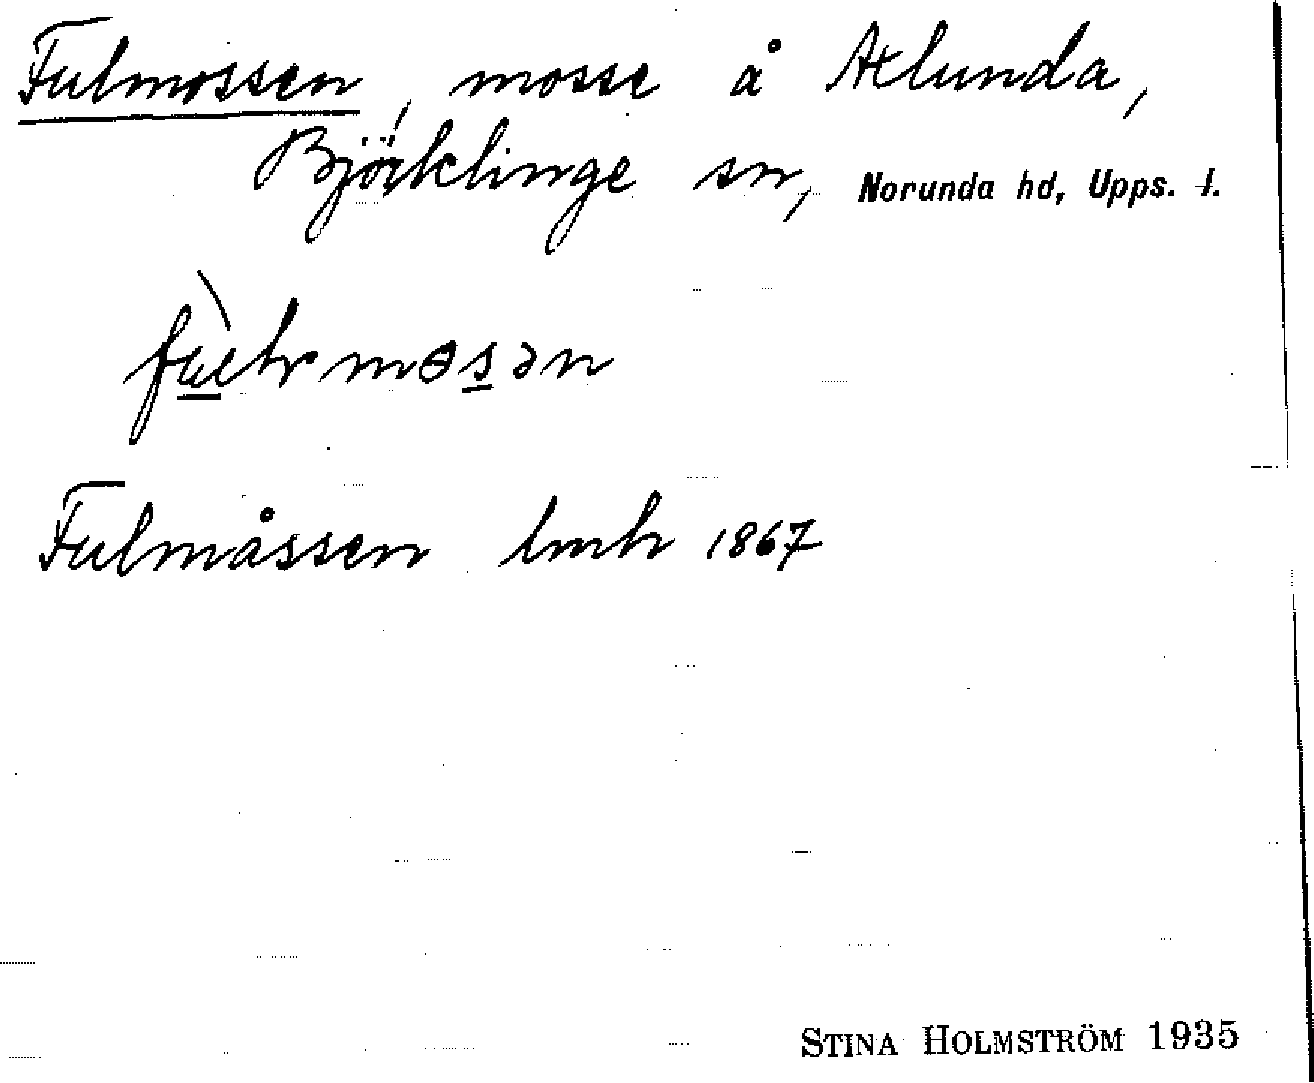 Fulmossen, mosse å Ælunda,
Björklinge sn, Norunda hd, Upps. l.
Fulmåssen lmh 1867
STINA HOLMSTRÖM 1935